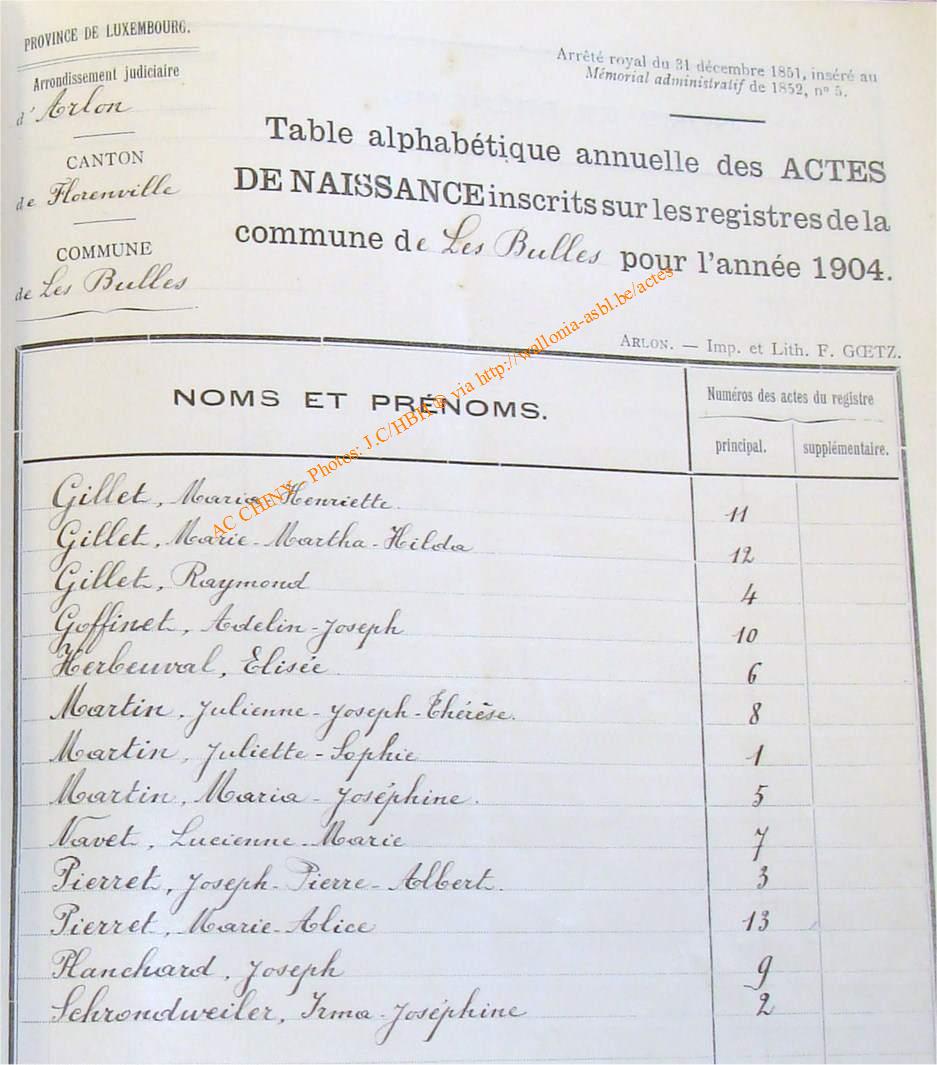 PROVINCE DE LUXEMBOURG.
Arrondissement judiciaire
d'Arlon
CANTON
de Florenville
COMMUNE
de Les Bulles
Arrêté royal du 31 décembre 1851, inséré au
Mémorial administratif de 1852, n° 5.
Table alphabétique annuelle des ACTES
DE NAISSANCE inscrits sur les registres de la
commune de Les Bulles pour l'année 1904.
ARLON. — Imp. et Lith. F. GŒTZ.
NOMS ET PRÉNOMS.
Numéros des actes du registre
principal. supplémentaire.
Gillet, Maria Henriette. 11
Gillet, Marie-Martha-Hilda 12
Gillet, Raymond 4
Goffinet, Adelin-Joseph 10
Herbeuval, Elisée 6
Martin, Julienne-Joseph-Thérèse. 8
Martin, Juliette-Sophie 1
Martin, Maria-Joséphine. 5
Navet, Lucienne-Marie 7
Pierret, Joseph-Pierre-Albert. 3
Pierret, Marie-Alice 13
Planchard, Joseph 9
Schrondweiler, Irma-Joséphine 2
AC CHINY - Photos: J.C/HBH © via http://wallonia-asbl.be/actes